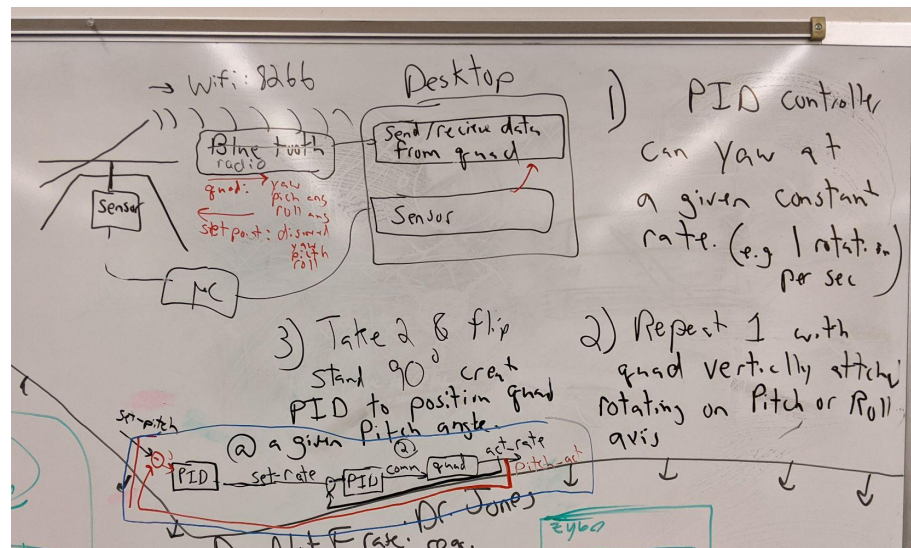 → Wifi: 8266
Desktop
Bluetooth
radio
Send/recieve data
from quad
Sensor
Sensor
quad: yaw
pich ang
roll ang
setpoint: disired
yaw
pitch
roll
μC
1) PID controller
can Yaw at
a given constant
rate. (e.g 1 rotation
per sec)
2) Repeat 1 with
quad vertically
rotating on Pitch or Roll
axis
3) Take 2 & flip
stand 90° creat
PID to position quad
@ a given Pitch angle.
set-pitch
PID
set-rate
PID
2
comm
quad
act_rate
pitch-act
Dr. Jones
Not
rate.
zybo